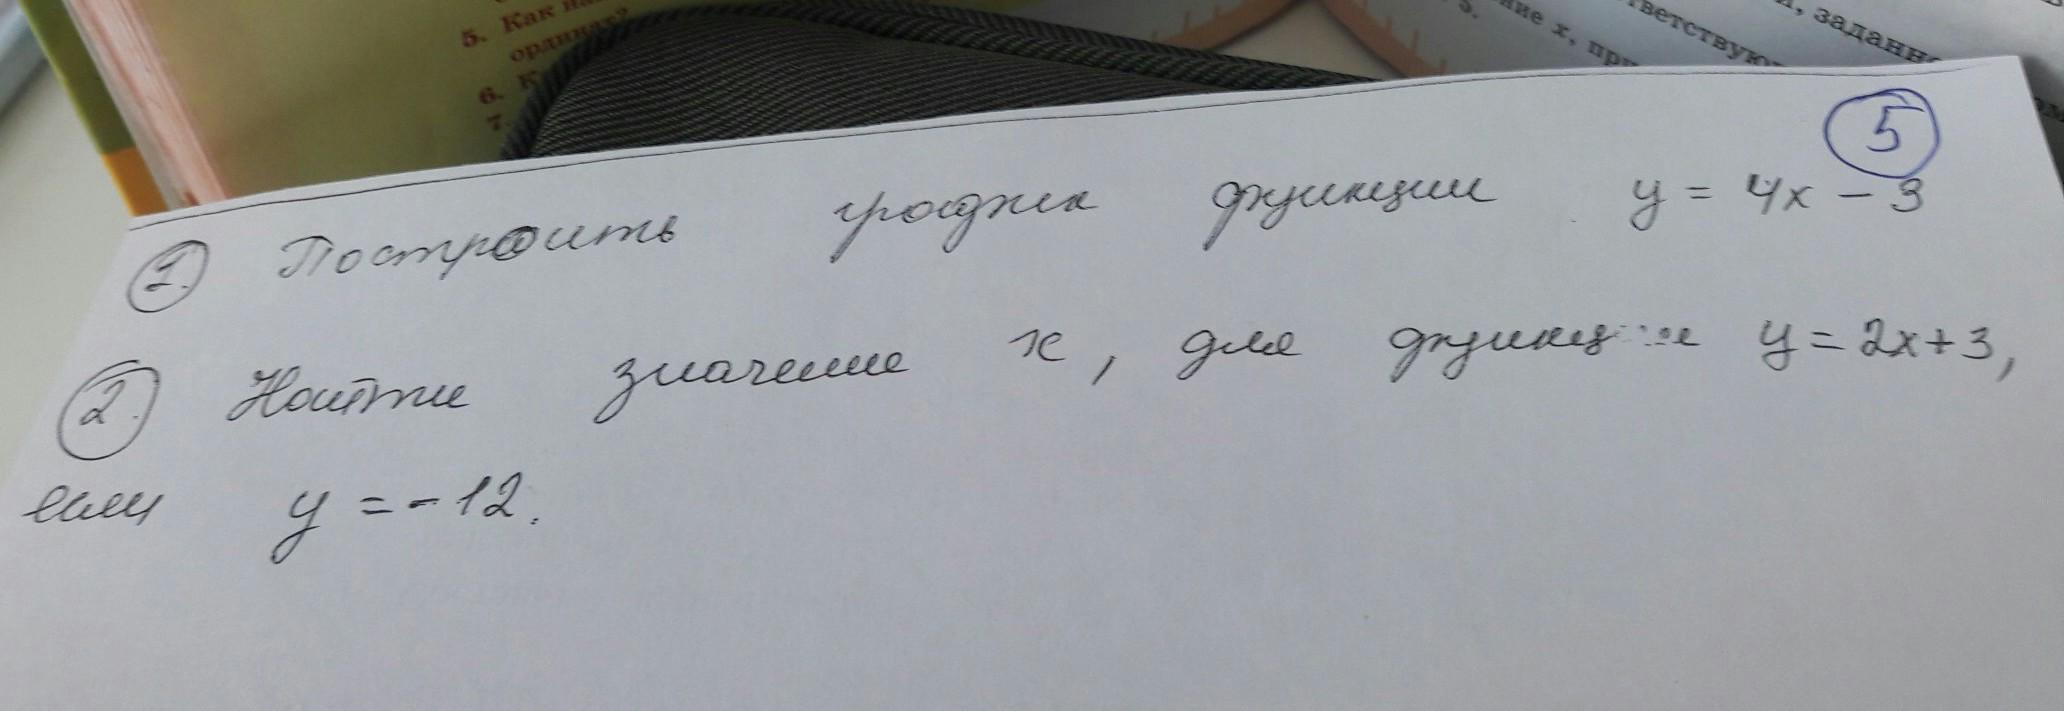 5. Как
ордина
6. К
7.
5.
ние х, при
тветствую
, заданно
5
1. Построить график функции y = 4x - 3
2. Найти значение x, для функции y = 2x + 3,
если y = -12.